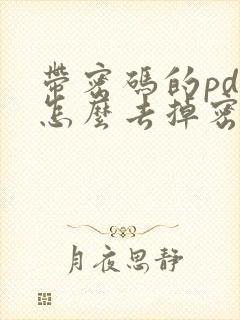 帶密碼的pd
怎麼去掉密
月夜思靜